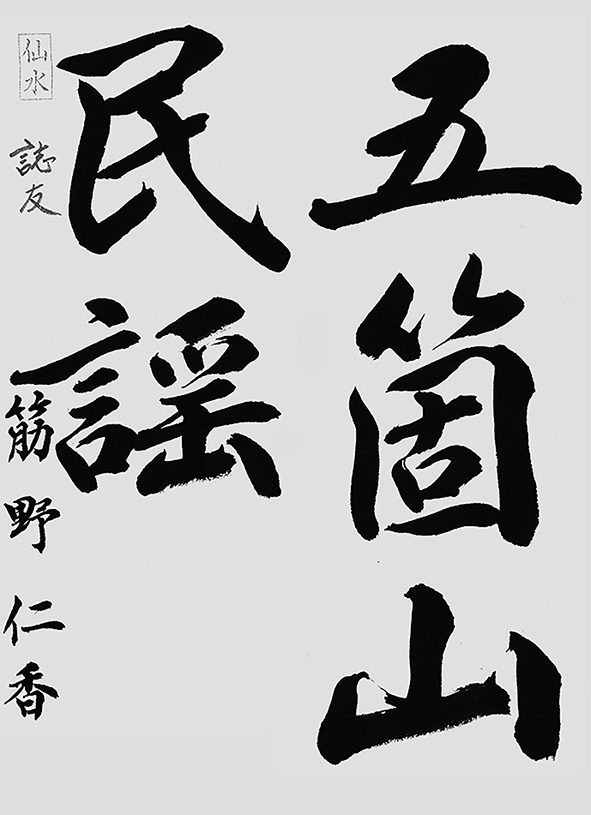 五箇山
民謡
仙水
誌友
筋野仁香